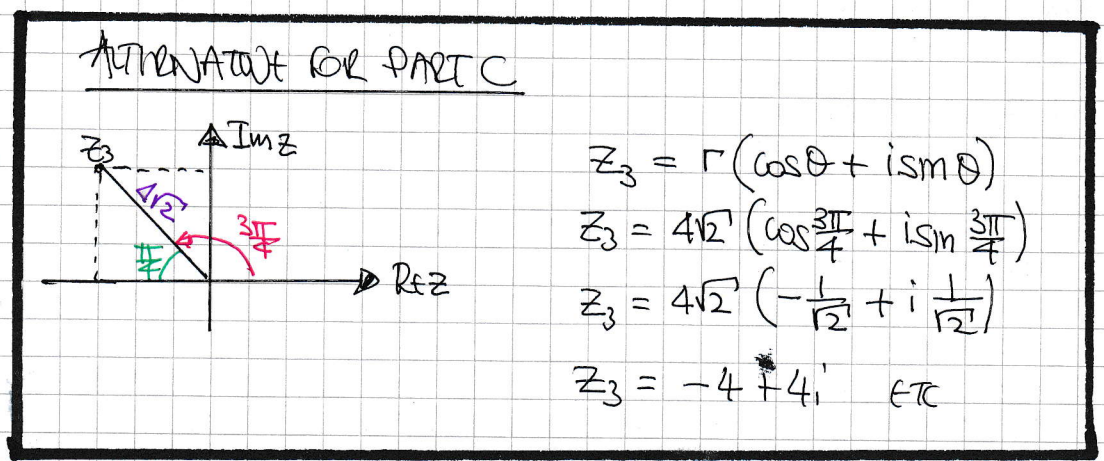 ALTERNATIVE FOR PART C
Im z
z₃
4√2
3π/4
π/4
Re z
z₃ = r(cosθ + i sinθ)
z₃ = 4√2 (cos 3π/4 + i sin 3π/4)
z₃ = 4√2 (-1/√2 + i 1/√2)
z₃ = -4 + 4i ETC